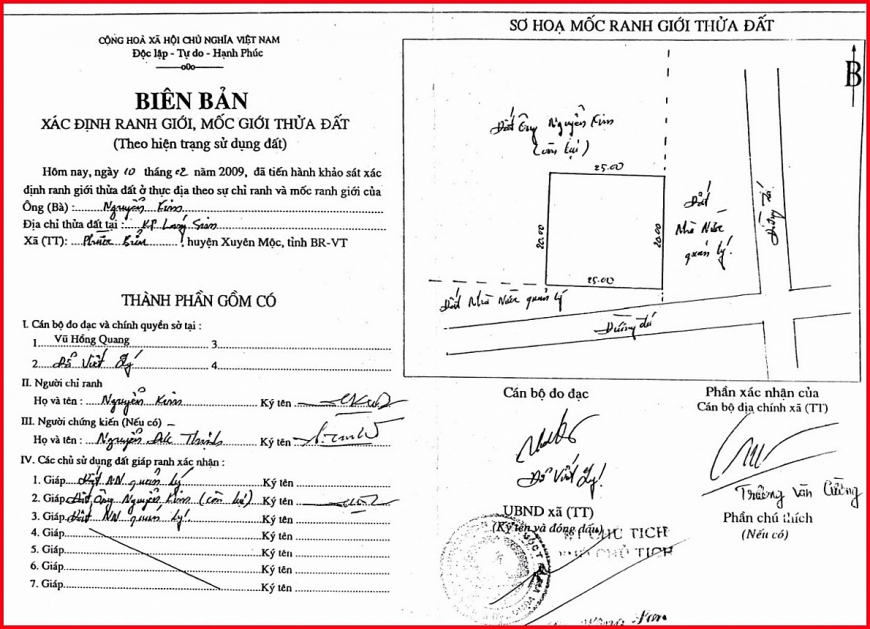 CỘNG HOÀ XÃ HỘI CHỦ NGHĨA VIỆT NAM
Độc lập - Tự do - Hạnh Phúc
BIÊN BẢN
XÁC ĐỊNH RANH GIỚI, MỐC GIỚI THỬA ĐẤT
(Theo hiện trạng sử dụng đất)
Hôm nay, ngày 10 tháng 02 năm 2009, đã tiến hành khảo sát xác
định ranh giới thửa đất ở thực địa theo sự chỉ ranh và mốc ranh giới của
Ông (Bà): Nguyễn Kim
Địa chỉ thửa đất tại: KP
Xã (TT): Phước Bửu, huyện Xuyên Mộc, tỉnh BR-VT
THÀNH PHẦN GỒM CÓ
I. Cán bộ đo đạc và chính quyền sở tại:
1. Vũ Hồng Quang 3
2. Đỗ Viết 4
II. Người chỉ ranh
Họ và tên: Nguyễn Kim Ký tên
III. Người chứng kiến (Nếu có)
Họ và tên: Nguyễn Đức Thịnh Ký tên
IV. Các chủ sử dụng đất giáp ranh xác nhận:
1. Giáp Đất NN quản lý Ký tên
2. Giáp Đất Ông Nguyễn Kim (còn lại) Ký tên
3. Giáp Đất NN quản lý Ký tên
4. Giáp Ký tên
5. Giáp Ký tên
6. Giáp Ký tên
7. Giáp Ký tên
SƠ HOẠ MỐC RANH GIỚI THỬA ĐẤT
B
Đất Ông Nguyễn Kim
(còn lại)
25.00
20.00
20.00
25.00
Đất
Nhà Nước
quản lý!
Đường đá
Đất Nhà Nước quản lý
Đường đá
Cán bộ đo đạc
Đỗ Viết
UBND xã (TT)
(Ký tên và đóng dấu)
CHỦ TỊCH
CHỦ TỊCH
Phần xác nhận của
Cán bộ địa chính xã (TT)
Trương Văn Cường
Phần chú thích
(Nếu có)